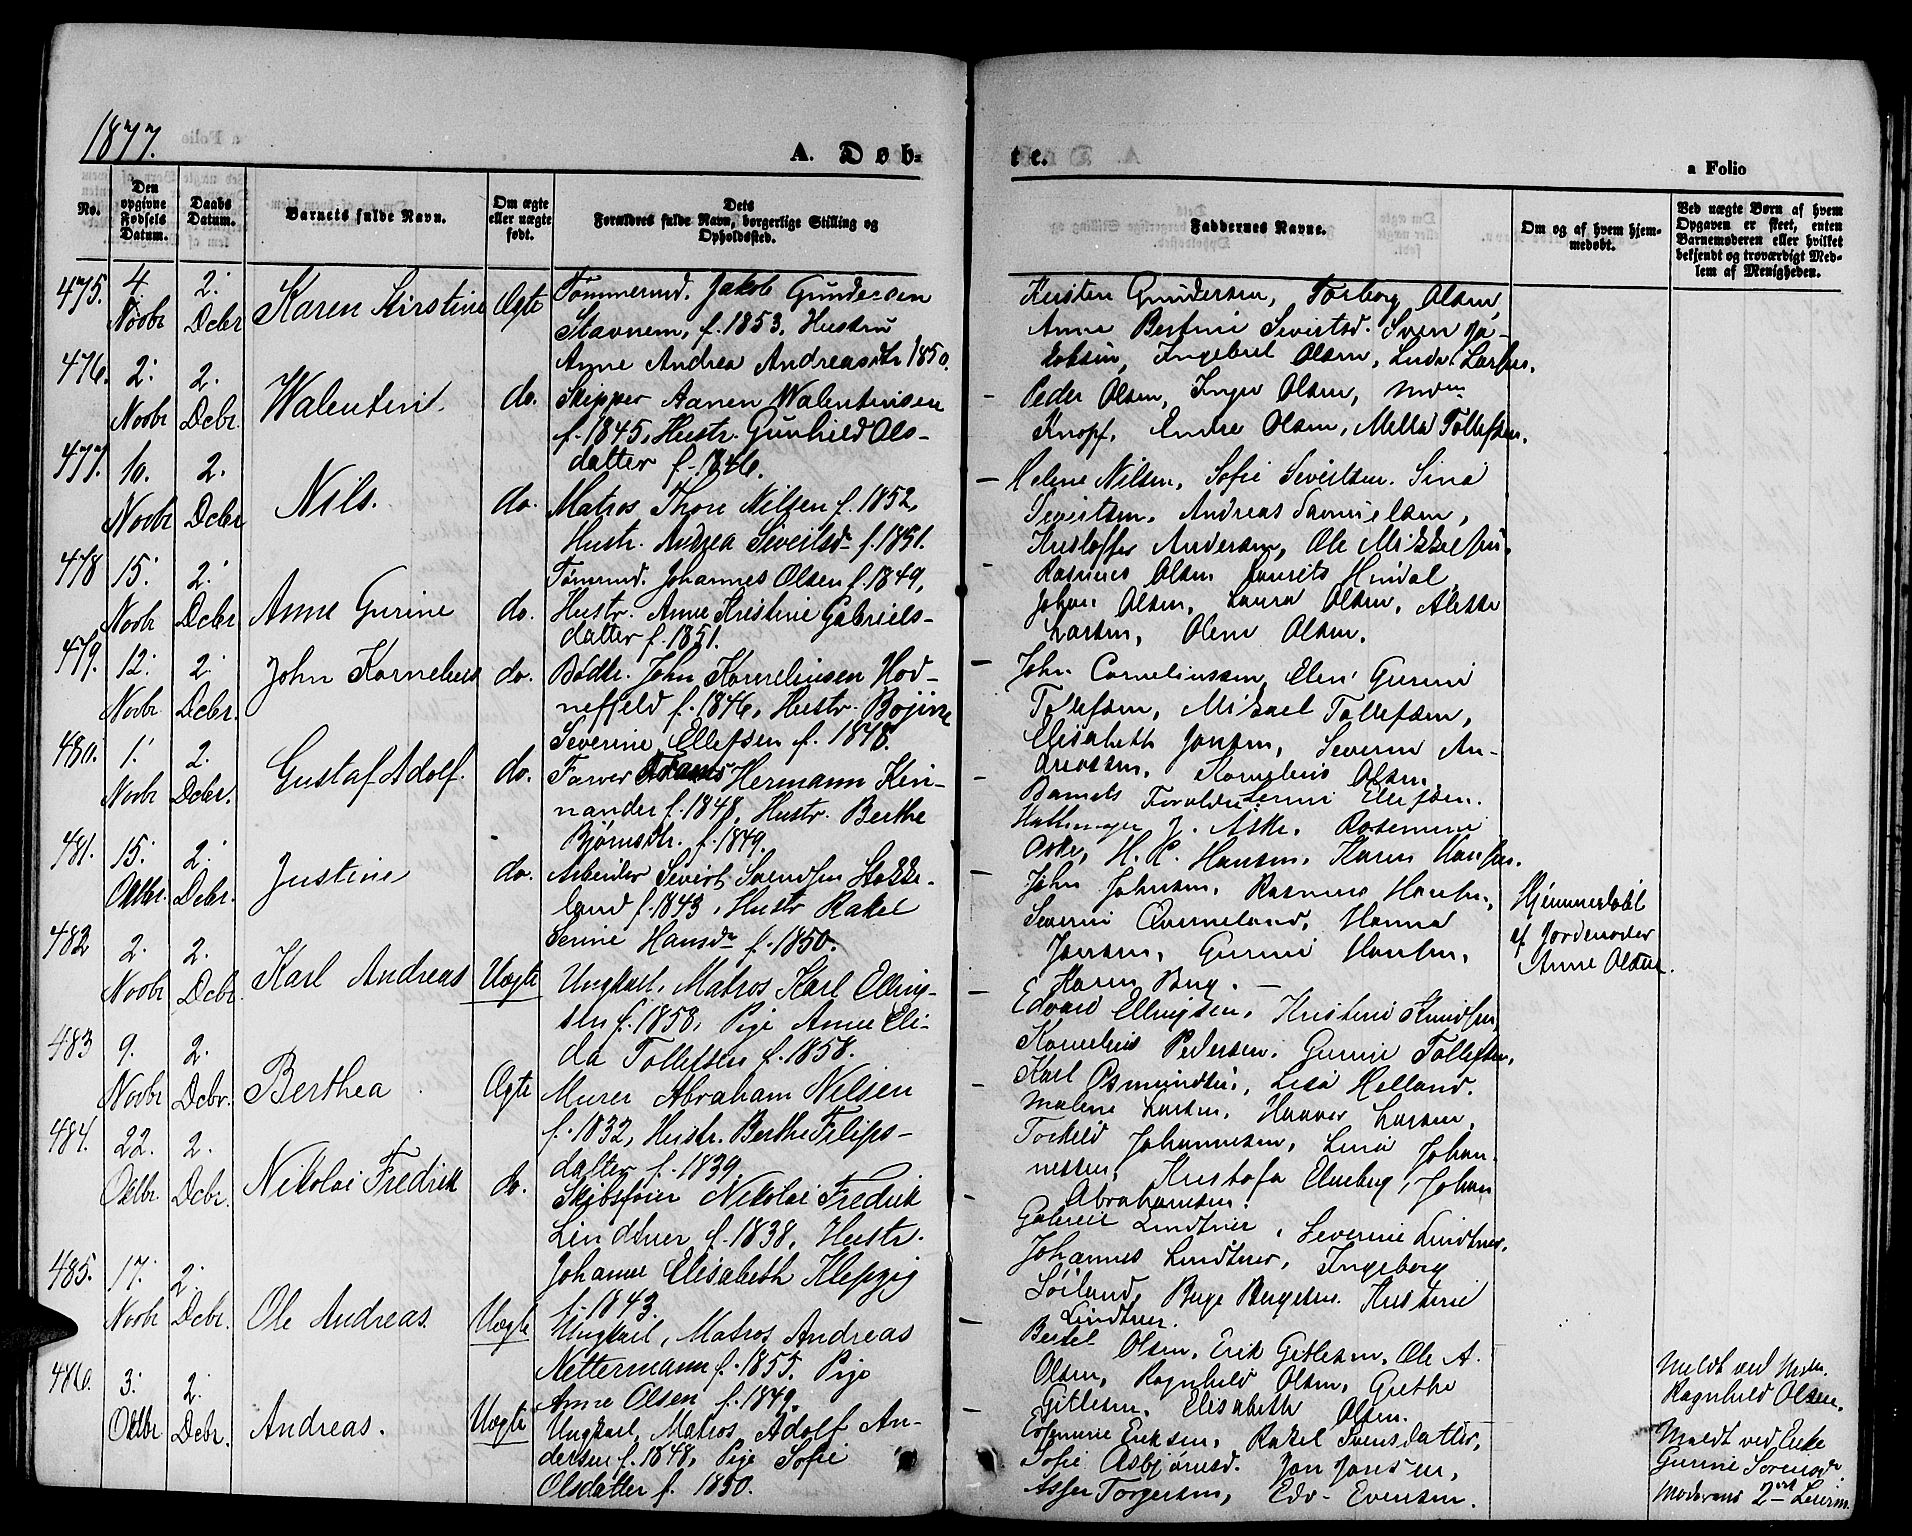 1877.
A. Døb-
te.
a Folio
No.
Den opgivne Fødsels Datum.
Daabs Datum.
Barnets fulde Navn.
Om ægte eller uægte født.
Dets Forældres fulde Navn, borgerlige Stilling og Opholdssted.
Faddernes Navne.
Om og af hvem hjemmedøbt.
Ved uægte Børn af hvem Opgaven er skeet, enten Barnemoderen eller hvilket bekjendt og troværdigt Medlem af Menigheden.
475. 4. Novbr 2. Dcbr Karen Kirstine Ægte
Tømmermd. Jakob Gundersen
Stavnem, f. 1853, Hustru
Anne Andrea Andreasdtr 1850.
Kirsten Gundersen, Torborg Olsen,
Anne Bertine Sivertsd. Sven Ja-
kobsen, Ingebret Olsen, Ludv. Larsen.
476. 2. Novbr 2. Dcbr. Walentin. do.
Skipper Aanen Walentinsen
f. 1845, Hustr. Gunhild Ols-
datter f. 1846.
Peder Olsen, Inger Olsen,
Knopf, Endre Olsen, Mella Tollefsen.
477. 10. Novbr 2. Dcbr Nils. do.
Matros Thore Nilsen f. 1852,
Hustr. Andrea Sivertsd. f. 1851.
Helene Nilsen, Sofie Sivertsen. Sina
Sivertsen, Andreas Samuelsen,
Kristoffer Andersen, Ole Mikkelsen.
478 15. Novbr 2. Dcbr Anne Gurine do.
Tømrmd. Johannes Olsen f. 1849,
Hustr. Anne Kristine Gabriels-
datter f. 1851.
Rasmus Olsen Laurits Hindal,
Johan Olsen, Laura Olsen, Alette
Larsen, Olene Olsen.
479. 12. Novbr 2. Dcbr. John Kornelius do.
Bødkr. John Korneliussen Hod-
neffeld f. 1846, Hustr. Bojine
Severine Ellefsen f. 1848.
John Corneliussen, Elen Gurine
Tollefsen, Mikael Tollefsen,
Elisabeth Jonsen, Severine An-
dreassen, Kornelius Olsen,
480. 1. Novbr 2. Dcbr. Gustaf Adolf. do.
Farver Hermann Kin-
nander f. 1848, Hustr. Berthe
Bjørnsdtr. f. 1849.
Barnets Forældre Lenni Ellefsen.
J. Aske, Rosemine
Aske, H. H. Hansen, Karen Hansen.
481. 15. Oktbr. 2. Dcbr. Justine do.
Arbeider Sivert Svendsen Stokke-
land f. 1843, Hustr Rakel
Serine Hansdr f. 1850.
John Johnsen, Rasmus Hansen,
Severine Qverneland, Hanna
Jansen, Gurine Hansen,
Karen Berg.
Hjemmedøbt
af Jordemoder
Anne Olsen.
482 2. Novbr 2. Dcbr. Karl Andreas Uægte
Ungkarl, Matros Karl Elling-
sen f. 1858, Pige Anne Eli-
da Tollefsen f. 1858.
Edvard Ellingsen, Kristine Knudsen,
Kornelius Pedersen. Gurine Tollefsen,
Karl Osmundsen, Lisa Helland.
483 9. Novbr 2. Dcbr. Berthea Ægte
Murer Abraham Nilsen
f. 1832, Hustr. Berthe Filips-
datter f. 1839.
Malene Larsen, Haaver Larsen,
Torkild Johannesen, Lina Johan-
nessen, Kristofa Elneberg, Johan
Abrahamsen.
484. 22. Oktbr 2. Dcbr. Nikolai Fredrik do.
Skibsfører Nikolai Fredrik
Lindtner f. 1838, Hustr.
Johanne Elisabeth Klepzig
f. 1843.
Gabriel Lindtner, Severine Lindtner,
Johannes Lindtner, Ingeborg
Soiland, Berge Bergesen. Kristine
Lindtner.
485. 17. Novbr 2. Dcbr. Ole Andreas. Uægte
Ungkarl, Matros Andreas
Nettermann f. 1855. Pige
Anne Olsen f. 1849.
Bertel Olsen, Erik Gitlesen, Ole A.
Olsen, Ragnhild Olsen, Grethe
Gitlesen, Elisabeth Olsen.
Meldt ved
Ragnhild Olsen.
486. 3. Oktbr 2. Dcbr. Andreas. Uægte
Ungkarl, Matros Adolf An-
dersen f. 1848, Pige Sofie
Olsdatter f. 1850.
Eriksen, Rakel Svensdatter,
Sofie Asbjørnsd. Jon Jonsen,
Asser Torgersen, Edv. Evensen.
Meldt ved Enke
Gurine Sørensdr
Moderens 2den Leierm.